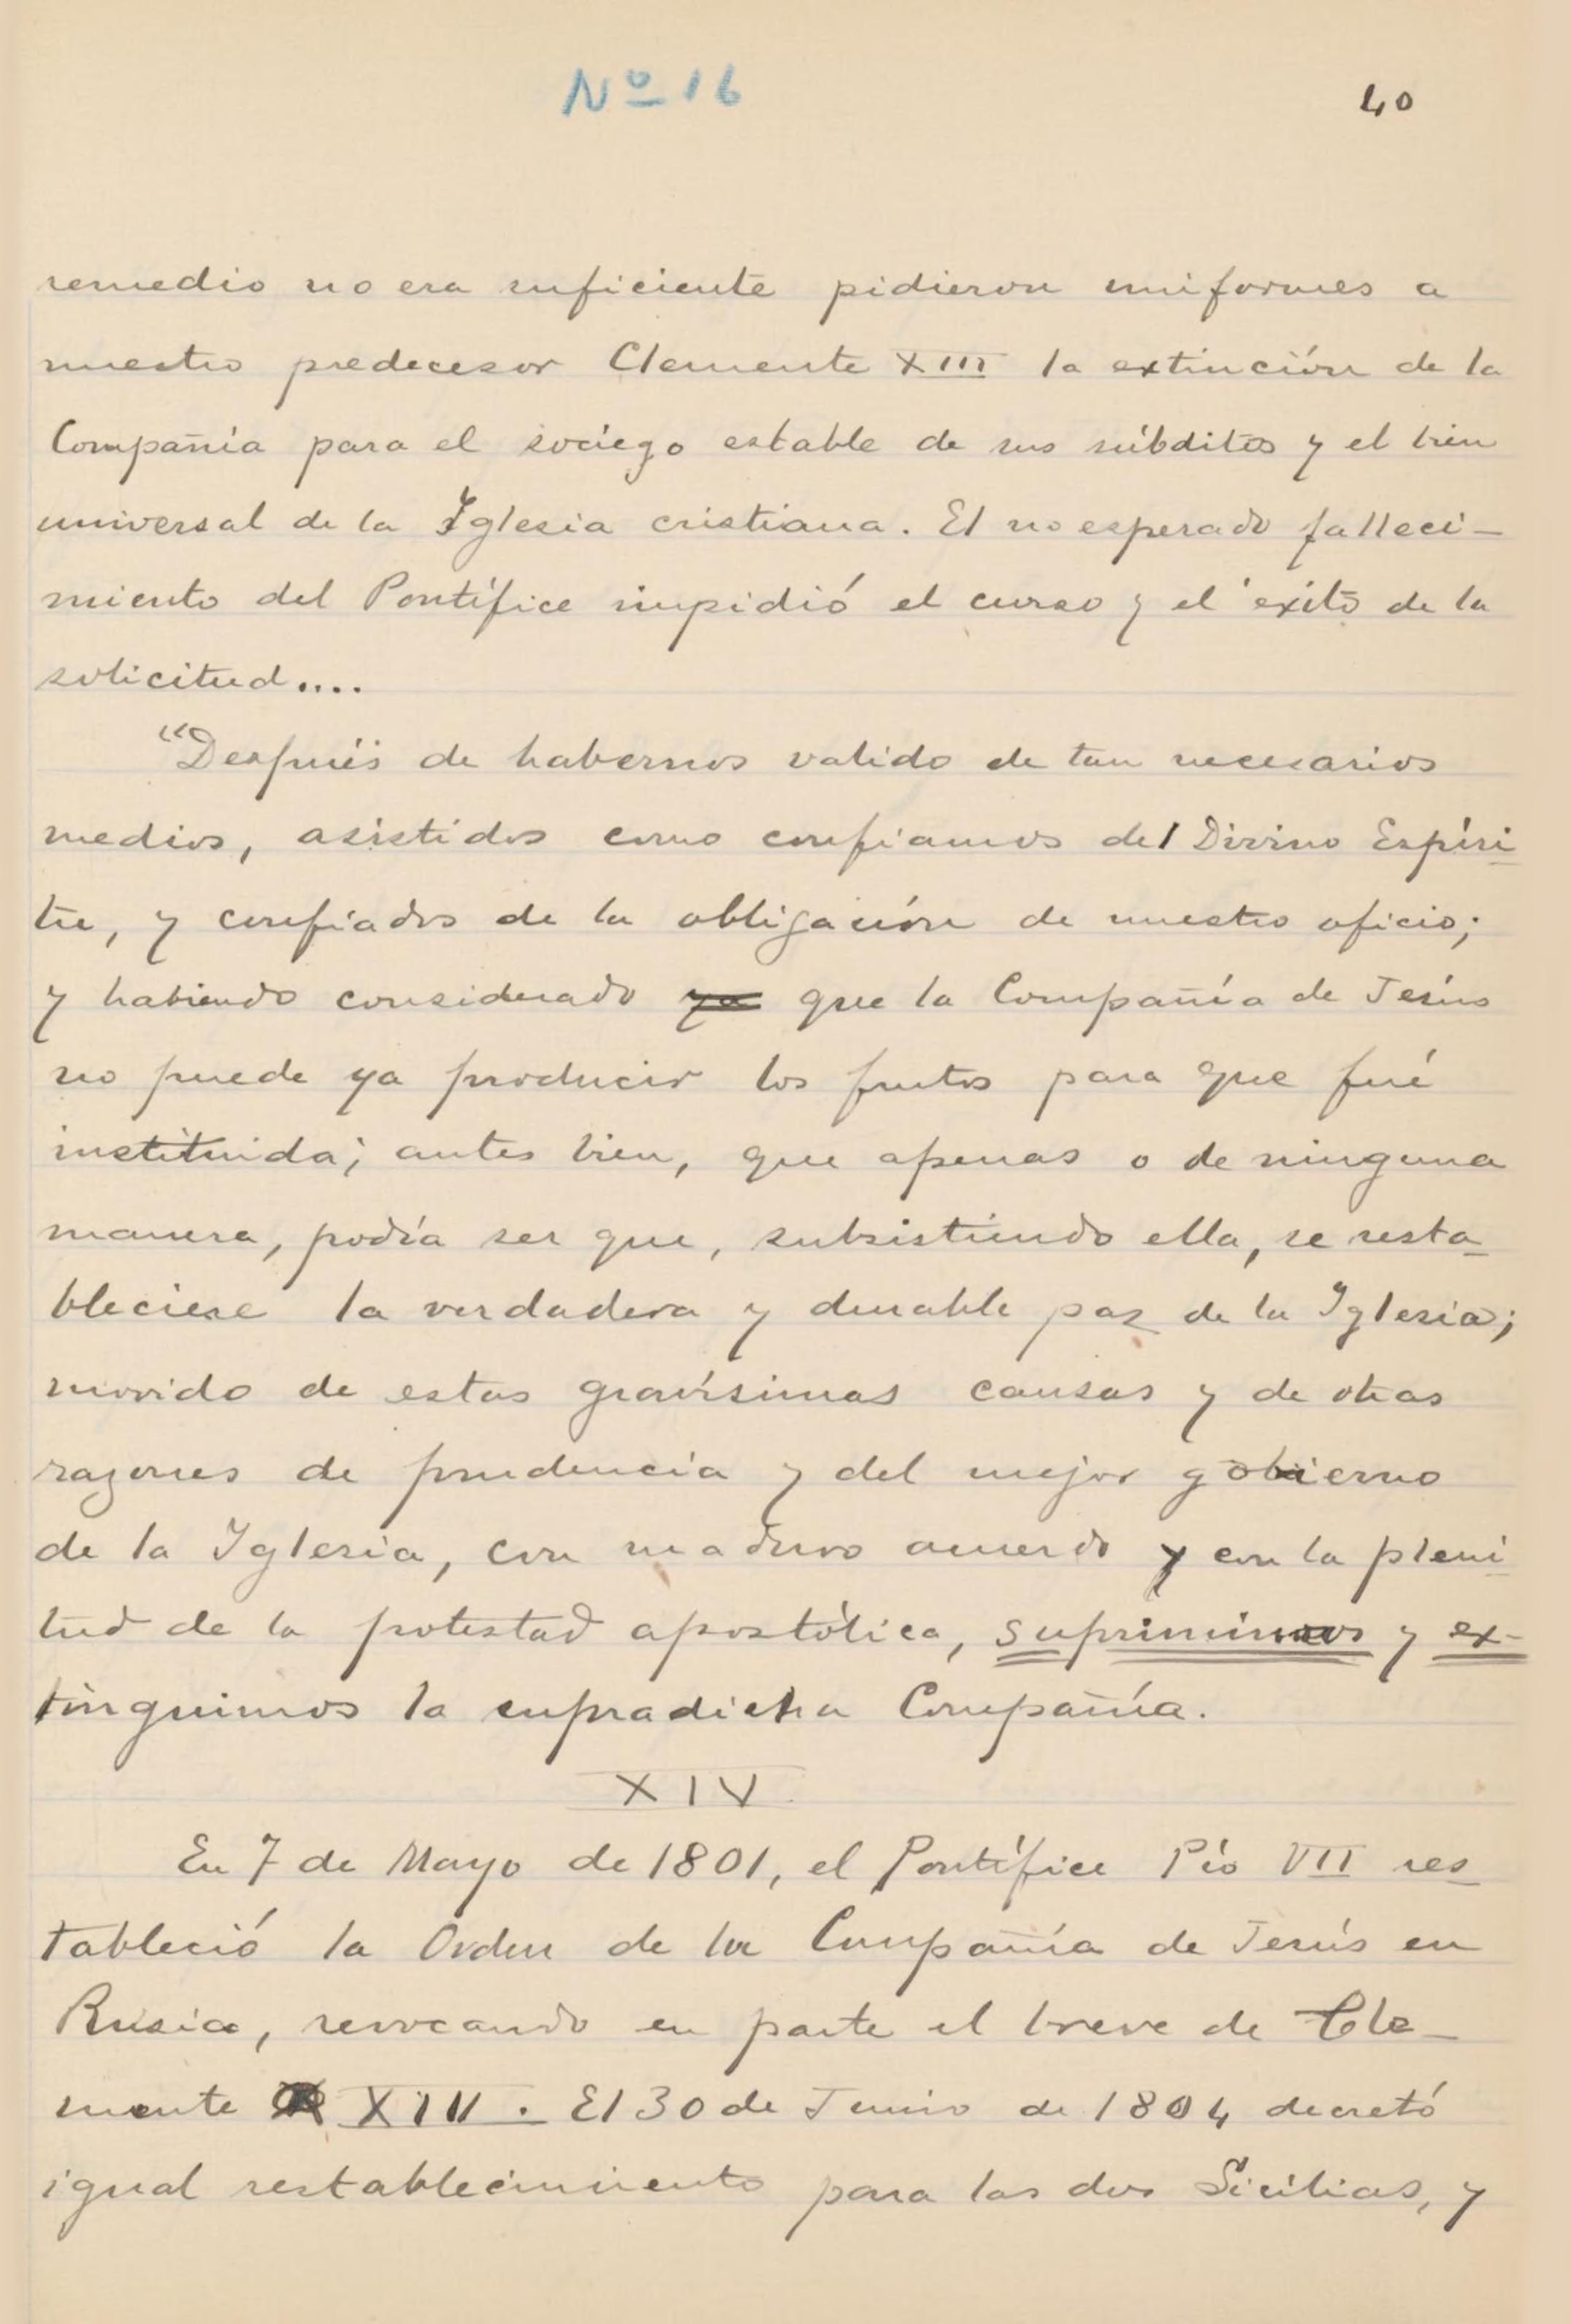 Nº 16
40
remedio no era suficiente pidieron uniformes a
nuestro predecesor Clemente XIII la extinción de la
Compañía para el sociego estable de sus súbditos y el bien
universal de la Iglesia cristiana. El no esperado falleci-
miento del Pontífice impidió el curso y el éxito de la
solicitud....
"Después de habernos valido de tan necesarios
medios, asistidos como confiamos del Divino Espíri-
tu, y confiados de la obligación de nuestro oficio;
y habiendo considerado ya que la Compañía de Jesús
no puede ya producir los frutos para que fué
instituida; antes bien, que apenas o de ninguna
manera, podía ser que, subsistiendo ella, se resta-
bleciese la verdadera y durable paz de la Iglesia;
movido de estas gravísimas causas y de otras
razones de prudencia y del mejor gobierno
de la Iglesia, con maduro acuerdo y con la pleni-
tud de la protestad apostólica, suprimimos y ex-
tinguimos la supradicha Compañía.
XIV
En 7 de Mayo de 1801, el Pontífice Pío VII res-
tableció la Orden de la Compañía de Jesús en
Rusia, revocando en parte el breve de Cle-
mente XIII. El 30 de Junio de 1804 decretó
igual restablecimiento para las dos Sicilias, y